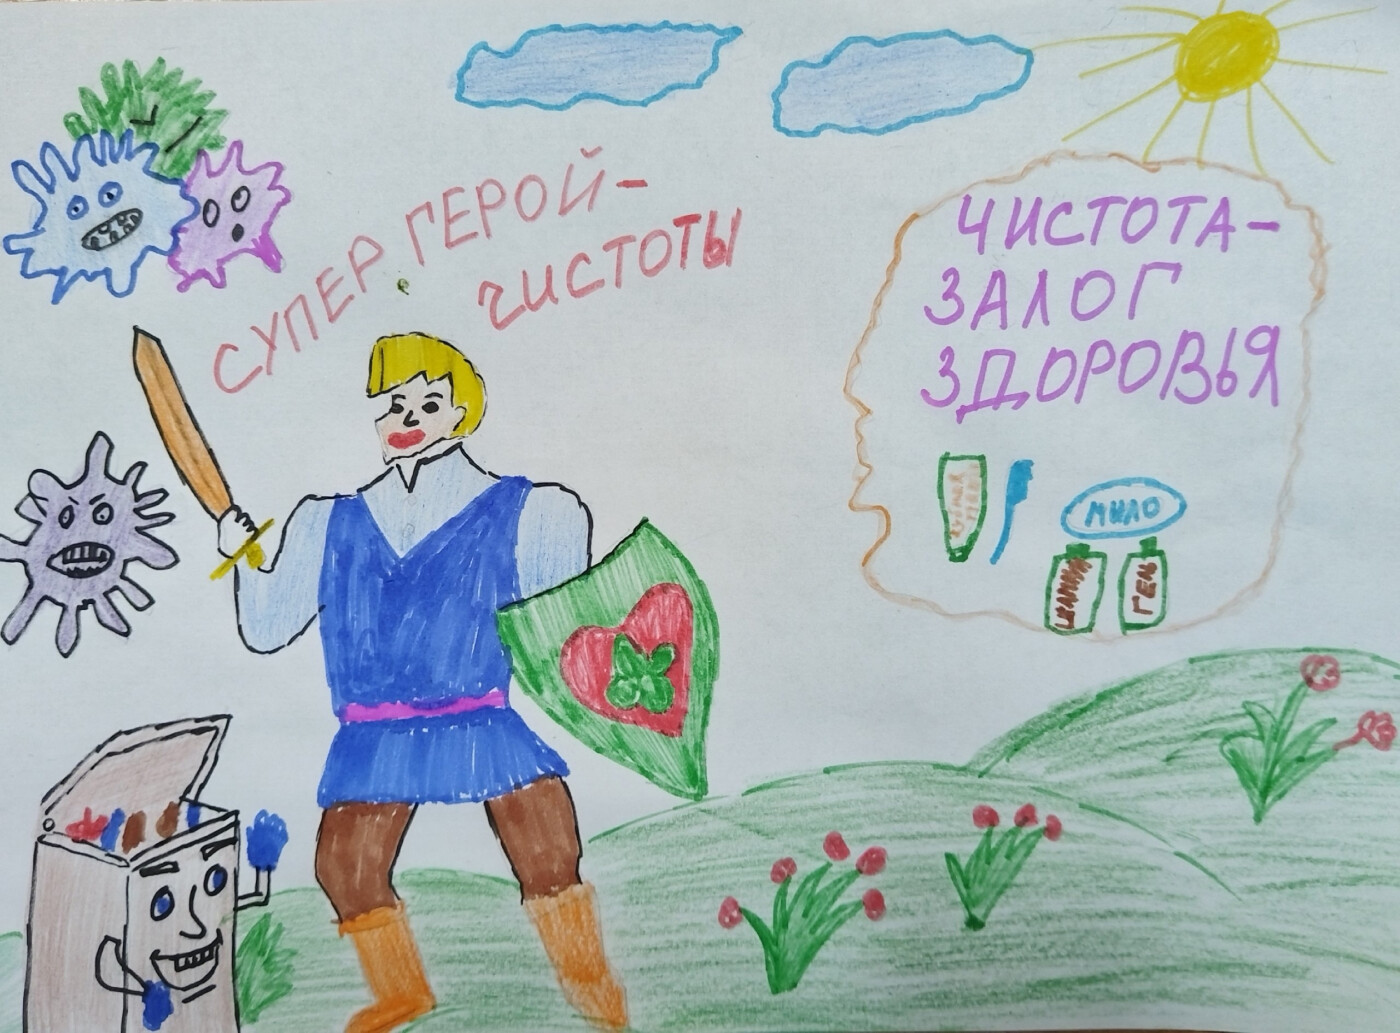 СУПЕР ГЕРОЙ-
ЧИСТОТЫ
ЧИСТОТА-
ЗАЛОГ
ЗДОРОВЬЯ
МЫЛО
ГЕЛЬ